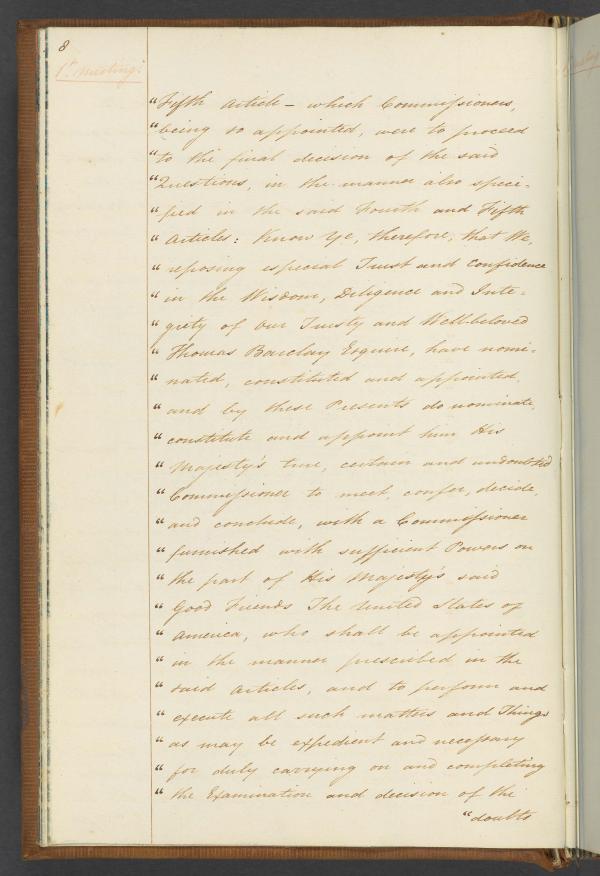 8
1st Meeting:
"Fifth Article – which Commissioners,
"being so appointed, were to proceed
"to the final decision of the said
"Questions, in the manner also speci-
"fied in the said Fourth and Fifth
"Articles: Know Ye, therefore, that We,
"reposing especial Trust and Confidence
"in the Wisdom, Diligence and Inte-
"grity of Our Trusty and Well-beloved
"Thomas Barclay Esquire, have nomi-
"nated, constituted and appointed,
"and by these Presents do nominate,
"constitute and appoint him His
"Majesty's true, certain and undoubted
"Commissioner to meet, confer, decide,
"and conclude, with a Commissioner
"furnished with sufficient Powers on
"the part of His Majesty's said
"Good Friends The United States of
"America, who shall be appointed
"in the manner prescribed in the
"said Articles, and to perform and
"execute all such matters and Things
"as may be expedient and necessary
"for duly carrying on and completing
"the Examination and decision of the
"doubts